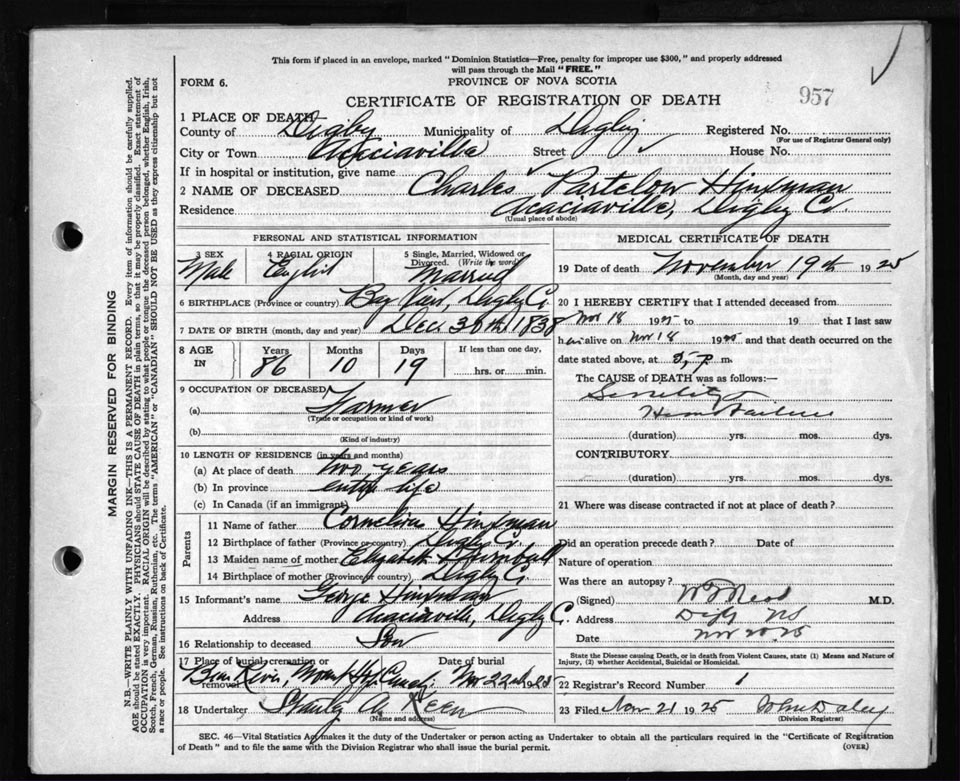 This form if placed in an envelope, marked "Dominion Statistics—Free, penalty for improper use $300," and properly addressed
will pass through the Mail "FREE."
FORM 6.
PROVINCE OF NOVA SCOTIA
CERTIFICATE OF REGISTRATION OF DEATH
957
1 PLACE OF DEATH
County of Digby Municipality of Digby Registered No.
(For use of Registrar General only)
City or Town Acaciaville Street House No.
If in hospital or institution, give name
2 NAME OF DECEASED Charles Partelow Hinxman
Residence Acaciaville, Digby Co.
(Usual place of abode)
PERSONAL AND STATISTICAL INFORMATION
3 SEX Male
4 RACIAL ORIGIN English
5 Single, Married, Widowed or Divorced. (Write the word) Married
6 BIRTHPLACE (Province or country) Bay View, Digby Co.
7 DATE OF BIRTH (month, day and year) Dec. 30th 1838
8 AGE IN Years 86 Months 10 Days 19 If less than one day, hrs. or min.
9 OCCUPATION OF DECEASED
(a) Farmer
(Trade or occupation or kind of work)
(b)
(Kind of industry)
10 LENGTH OF RESIDENCE (in years and months)
(a) At place of death two years
(b) In province entire life
(c) In Canada (if an immigrant)
Parents
11 Name of father Cornelius Hinxman
12 Birthplace of father (Province or country) Digby Co.
13 Maiden name of mother Elizabeth Turnbull
14 Birthplace of mother (Province or country) Digby Co.
15 Informant's name George Hinxman
Address Acaciaville, Digby Co.
16 Relationship to deceased Son
17 Place of burial, cremation or removal Bear River, Mount Hope Date of burial Nov 22nd
18 Undertaker Stanley A.
(Name and address)
MEDICAL CERTIFICATE OF DEATH
19 Date of death November 19th 1925
(Month, day and year)
20 I HEREBY CERTIFY that I attended deceased from
Nov 18 1925 to 19 that I last saw
him alive on Nov 18 1925 and that death occurred on the
date stated above, at p m.
The CAUSE of DEATH was as follows:—
Senility
Heart Failure
(duration) yrs. mos. dys.
CONTRIBUTORY
(duration) yrs. mos. dys.
21 Where was disease contracted if not at place of death?
Did an operation precede death? Date of
Nature of operation
Was there an autopsy?
(Signed) M.D.
Address Digby NS
Date Nov 20 25
State the Disease causing Death, or in death from Violent Causes, state (1) Means and Nature of
Injury, (2) whether Accidental, Suicidal or Homicidal.
22 Registrar's Record Number 1
23 Filed Nov 21 1925 John Daley
(Division Registrar)
SEC. 46—Vital Statistics Act makes it the duty of the Undertaker or person acting as Undertaker to obtain all the particulars required in the "Certificate of Registration
of Death" and to file the same with the Division Registrar who shall issue the burial permit.
(OVER)
MARGIN RESERVED FOR BINDING
N.B.—WRITE PLAINLY WITH UNFADING INK—THIS IS A PERMANENT RECORD. Every item of information should be carefully supplied.
AGE should be stated EXACTLY. PHYSICIANS should STATE CAUSE OF DEATH in plain terms, so that it may be properly classified. Exact statement of
OCCUPATION is very important. RACIAL ORIGIN will be described by stating to what people or tongue the deceased person belonged, whether English, Irish,
Scotch, French, German, Russian, Ruthenian, etc. The terms "AMERICAN" or "CANADIAN" SHOULD NOT BE USED as they express citizenship but not
a race or people. See instructions on back of Certificate.